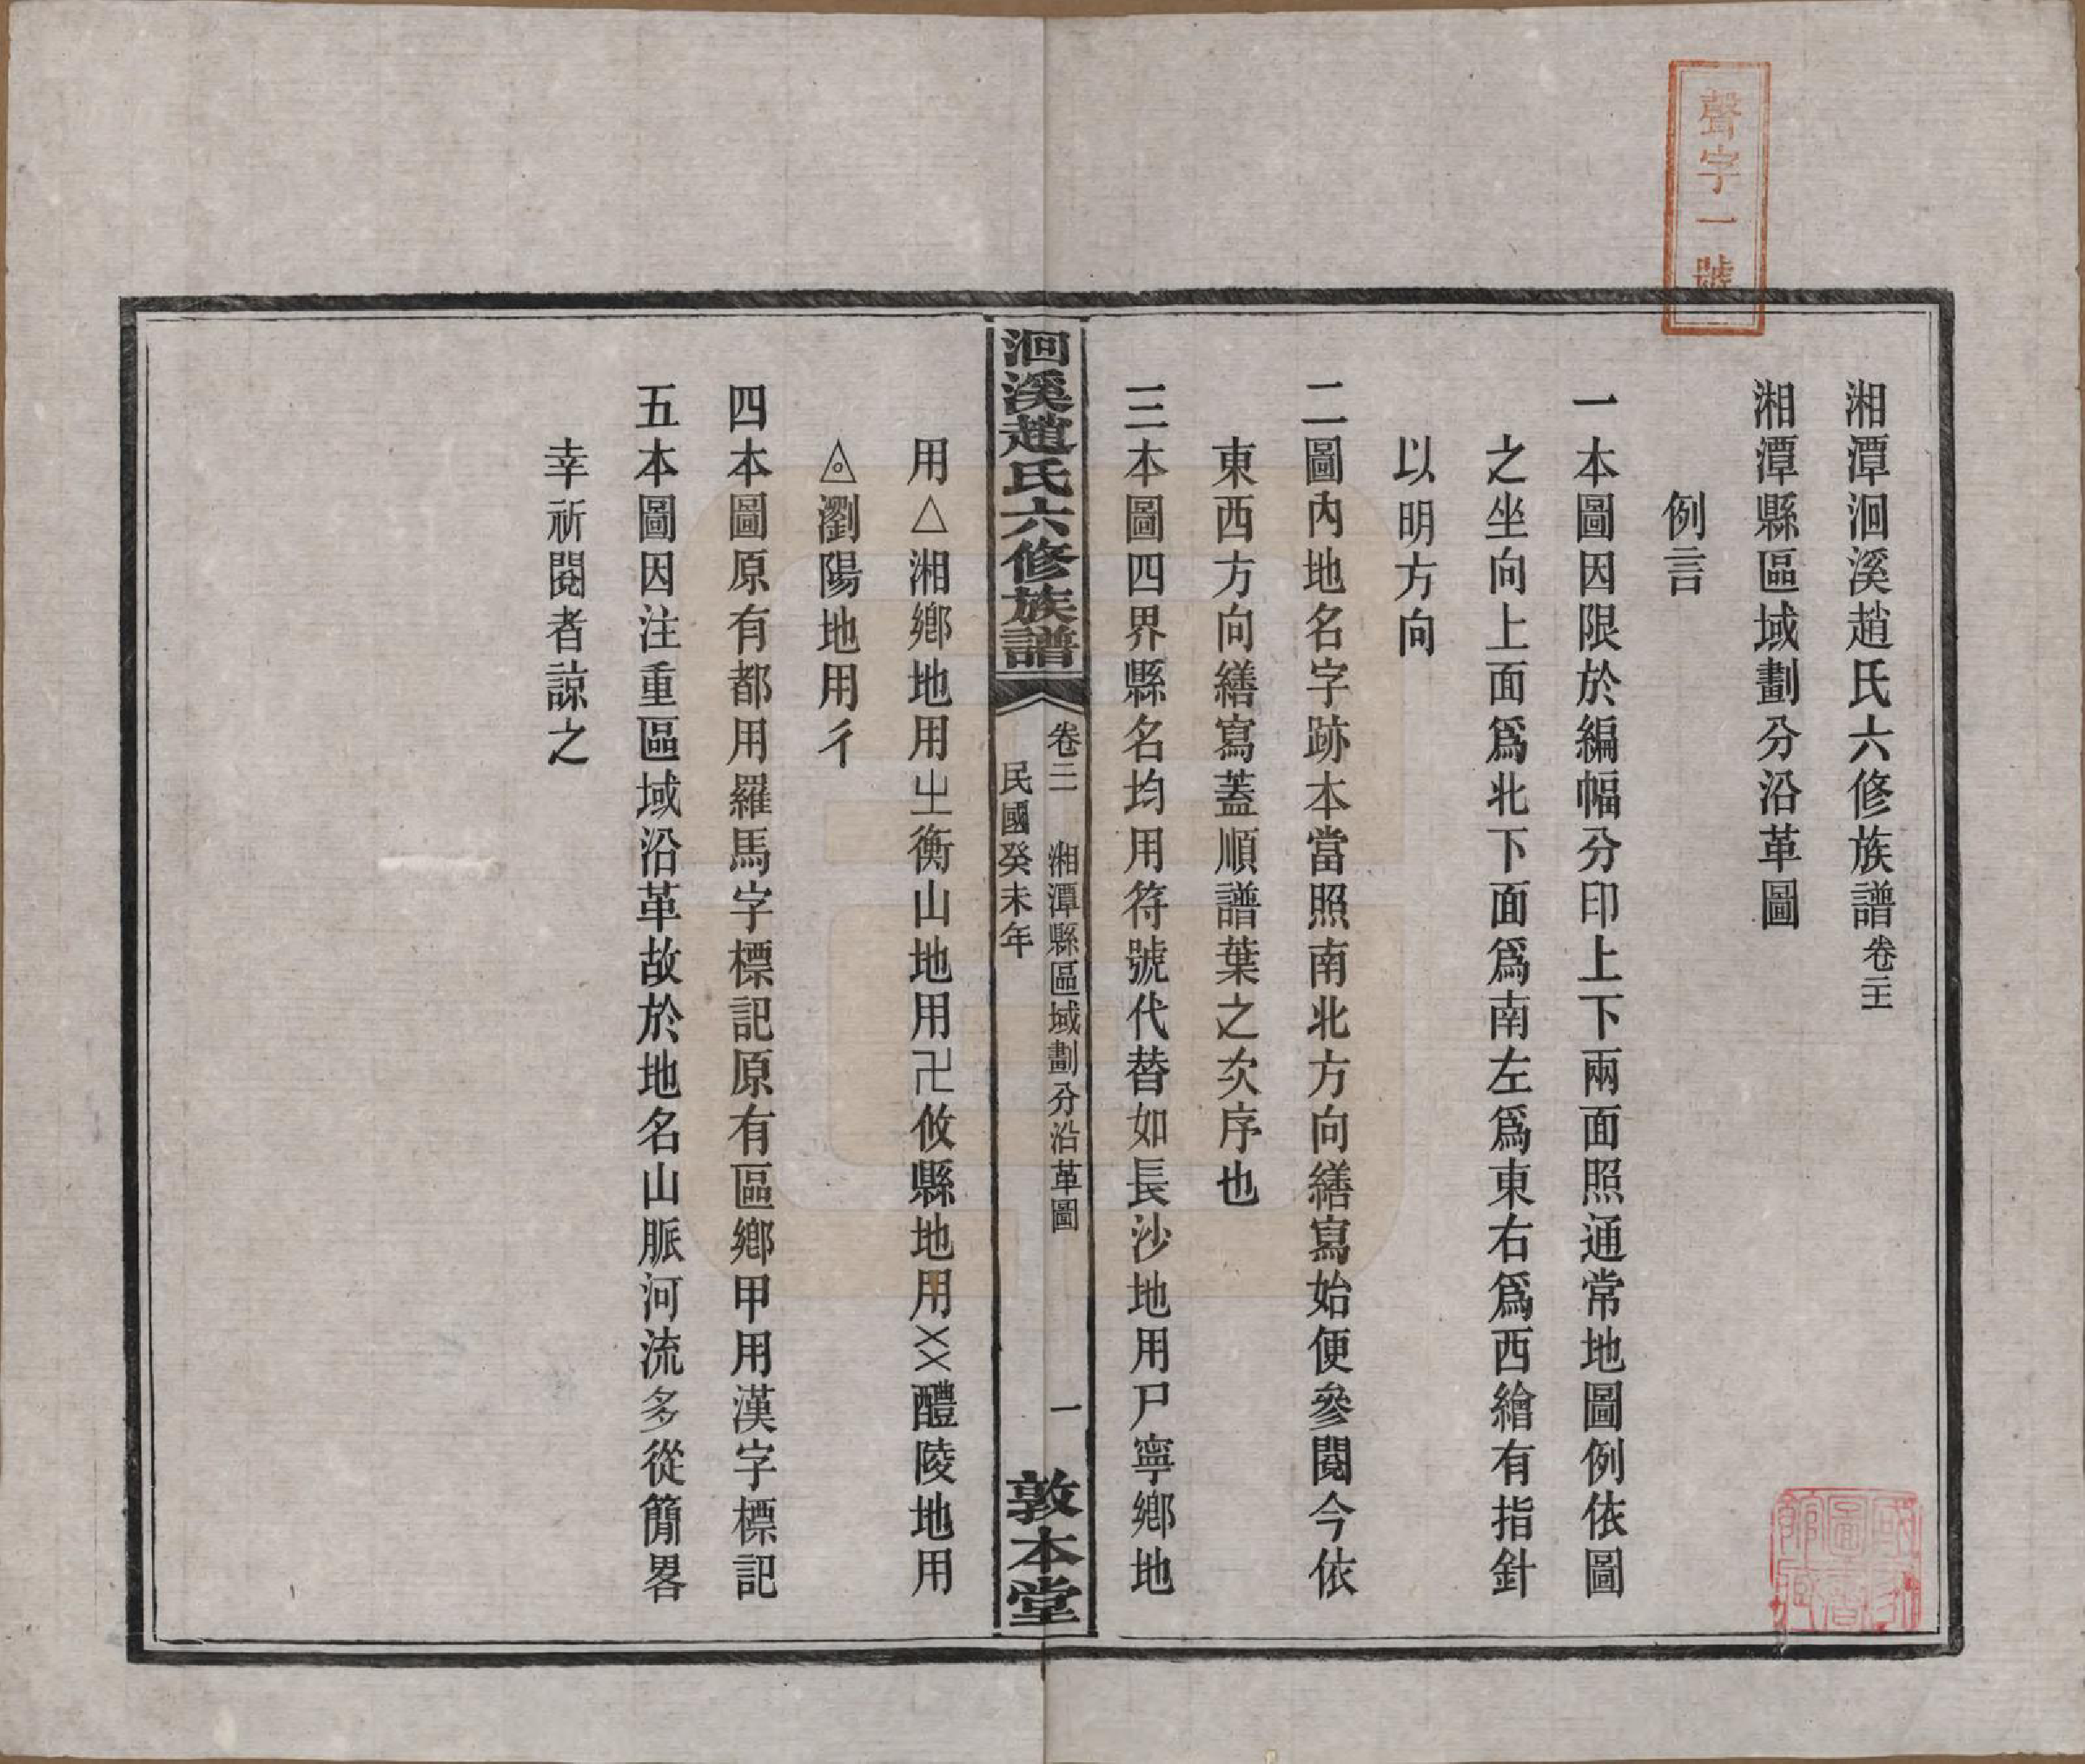 聲字一號
湘潭洄溪趙氏六修族譜卷二
湘潭縣區域劃分沿革圖
例言
一本圖因限於編幅分印上下兩面照通常地圖例依圖
之坐向上面爲北下面爲南左爲東右爲西繪有指針
以明方向
二圖內地名字跡本當照南北方向繕寫始便參閱今依
東西方向繕寫蓋順譜葉之次序也
三本圖四界縣名均用符號代替如長沙地用尸寧鄉地
洄溪趙氏六修族譜
卷二 湘潭縣區域劃分沿革圖 一
民國癸未年
敦本堂
用△湘鄉地用㞢衡山地用卍攸縣地用××醴陵地用
◬瀏陽地用彳
四本圖原有都用羅馬字標記原有區鄉甲用漢字標記
五本圖因注重區域沿革故於地名山脈河流多從簡畧
幸祈閱者諒之